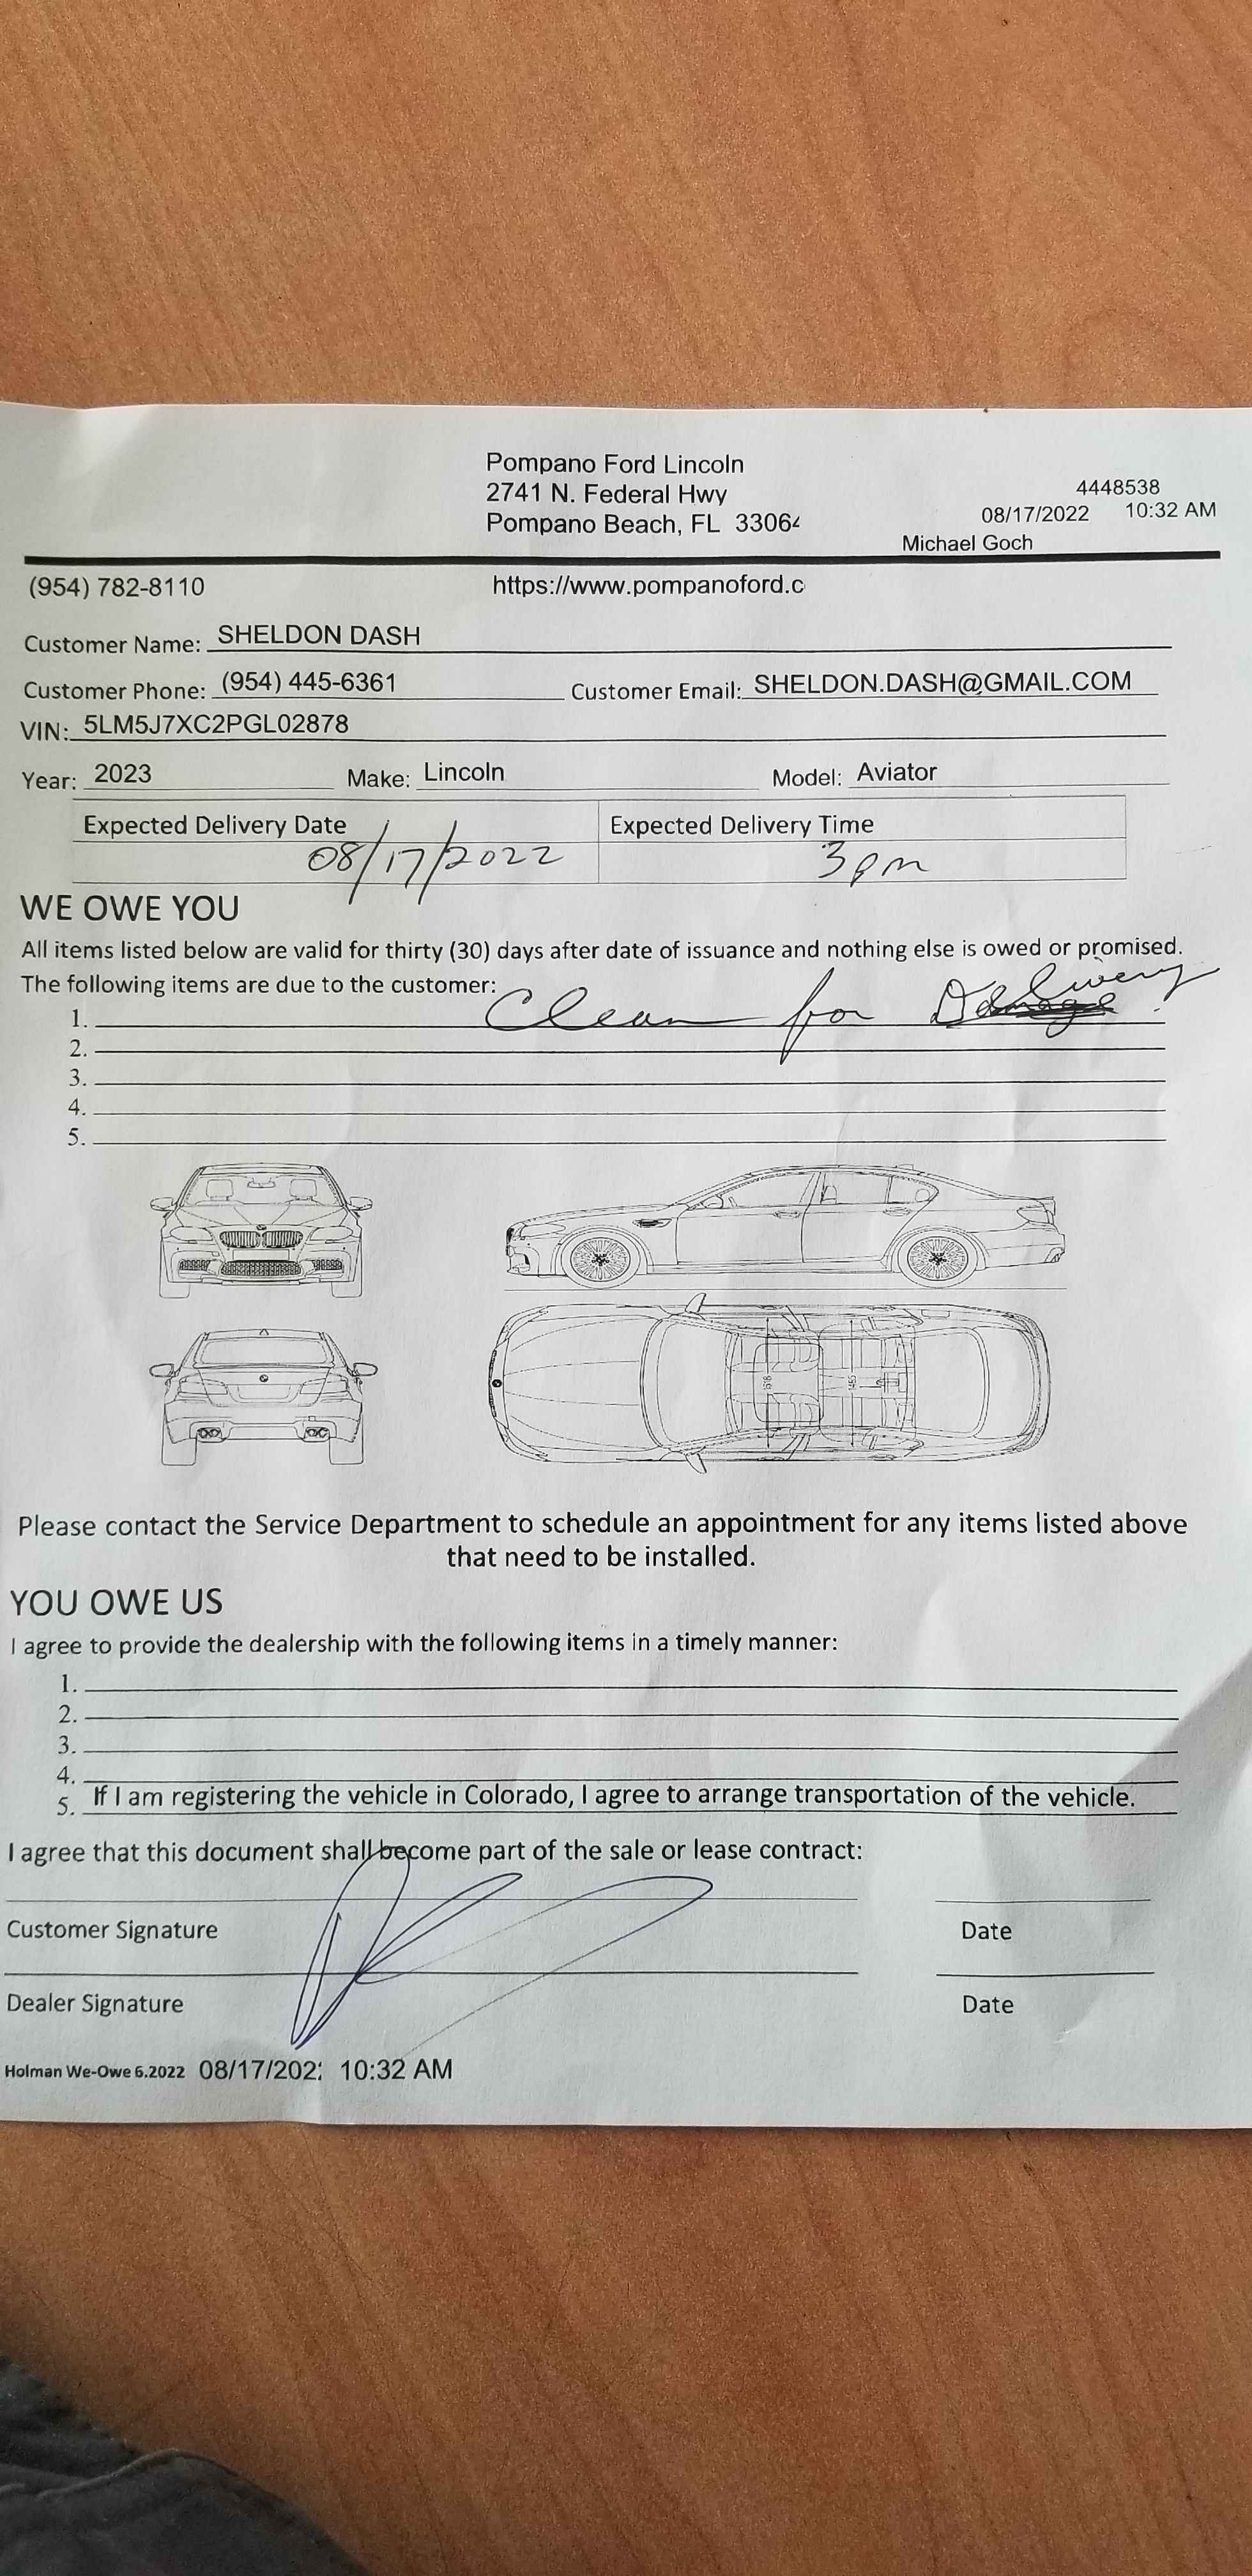 Pompano Ford Lincoln
2741 N. Federal Hwy
Pompano Beach, FL 33064
4448538
08/17/2022 10:32 AM
Michael Goch
(954) 782-8110 https://www.pompanoford.c
Customer Name: SHELDON DASH
Customer Phone: (954) 445-6361 Customer Email: SHELDON.DASH@GMAIL.COM
VIN: 5LM5J7XC2PGL02878
Year: 2023 Make: Lincoln Model: Aviator
Expected Delivery Date Expected Delivery Time
08/17/2022 3pm
WE OWE YOU
All items listed below are valid for thirty (30) days after date of issuance and nothing else is owed or promised.
The following items are due to the customer:
1. Clean for Delivery
2.
3.
4.
5.
Please contact the Service Department to schedule an appointment for any items listed above
that need to be installed.
YOU OWE US
I agree to provide the dealership with the following items in a timely manner:
1.
2.
3.
4.
5. If I am registering the vehicle in Colorado, I agree to arrange transportation of the vehicle.
I agree that this document shall become part of the sale or lease contract:
Customer Signature Date
Dealer Signature Date
Holman We-Owe 6.2022 08/17/202 10:32 AM